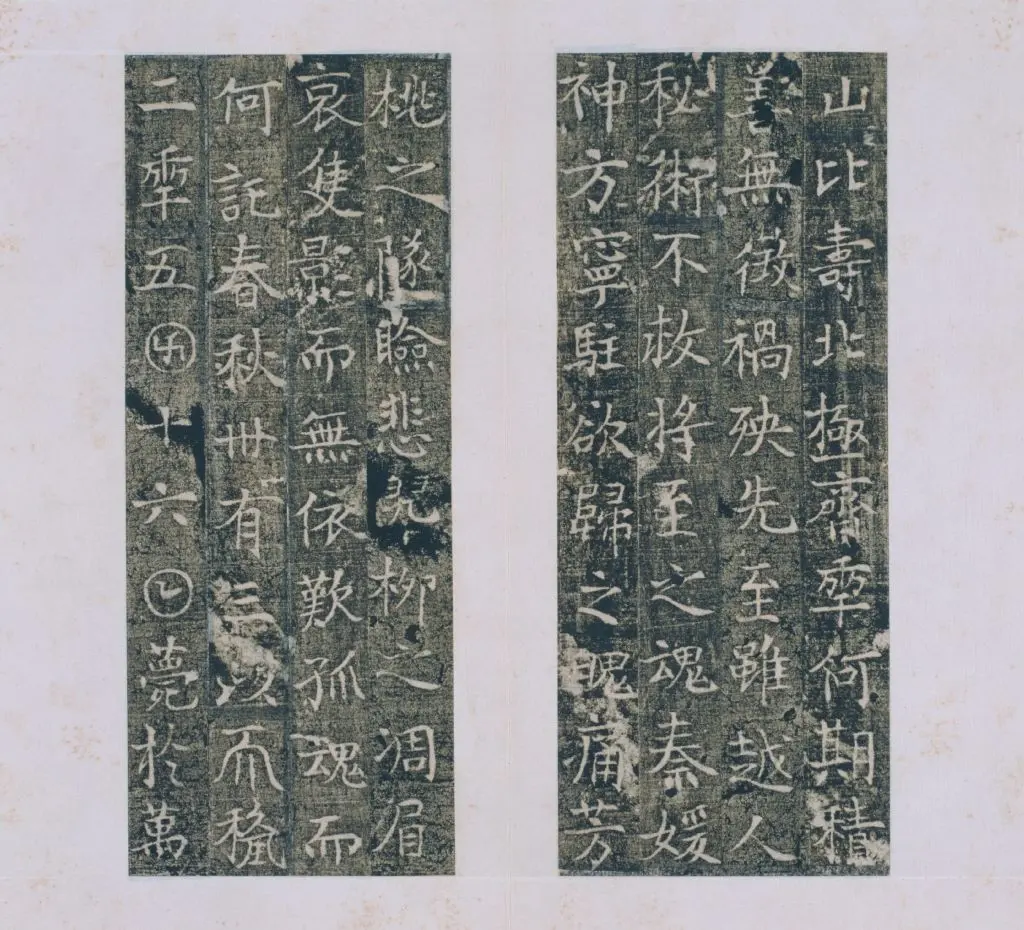 山比壽北極齊𠡦何期積
善無徵禍殃先至雖越人
秘術不救將至之魂秦媛
神方寧駐欲歸之魄痛芳
桃之隊臉悲翠柳之凋眉
哀隻影而無依歎孤魂而
何託春秋卌有三以𠀑𥠢
二𠡦五𠥱十六𡆠薨於萬